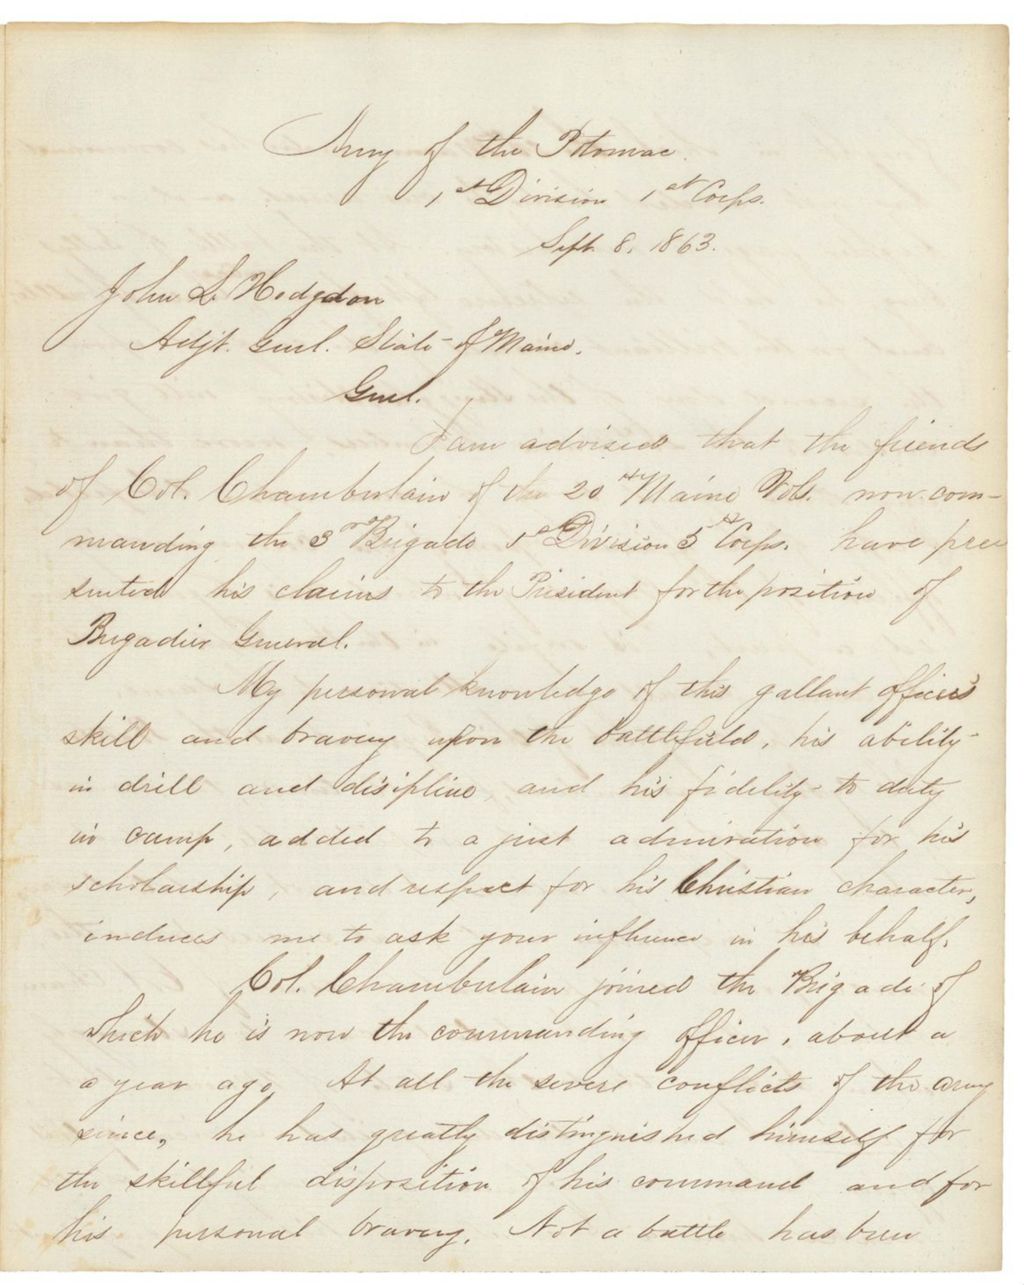 Army of the Potomac
1st Division 1st Corps.
Sept. 8. 1863.
John L Hodgdon
Adjt. Genl. State of Maine.
Genl.
I am advised that the friends
of Col. Chamberlain of the 20th Maine Vols. now com-
manding the 3rd Brigade 1st Division 5th Corps. have pre
sented his claims to the President for the position of
Brigadier General.
My personal knowledge of this gallant officer's
skill and bravery upon the battlefield, his ability
in drill and disipline, and his fidelity to duty
in camp, added to a just admiration for his
scholarship, and respect for his Christian character,
induces me to ask your influence in his behalf.
Col. Chamberlain joined the Brigade of
which he is now the commanding officer, about a
a year ago, At all the severe conflicts of the army
since, he has greatly distinguished himself for
the skillful disposition of his command and for
his personal bravery. Not a battle has been